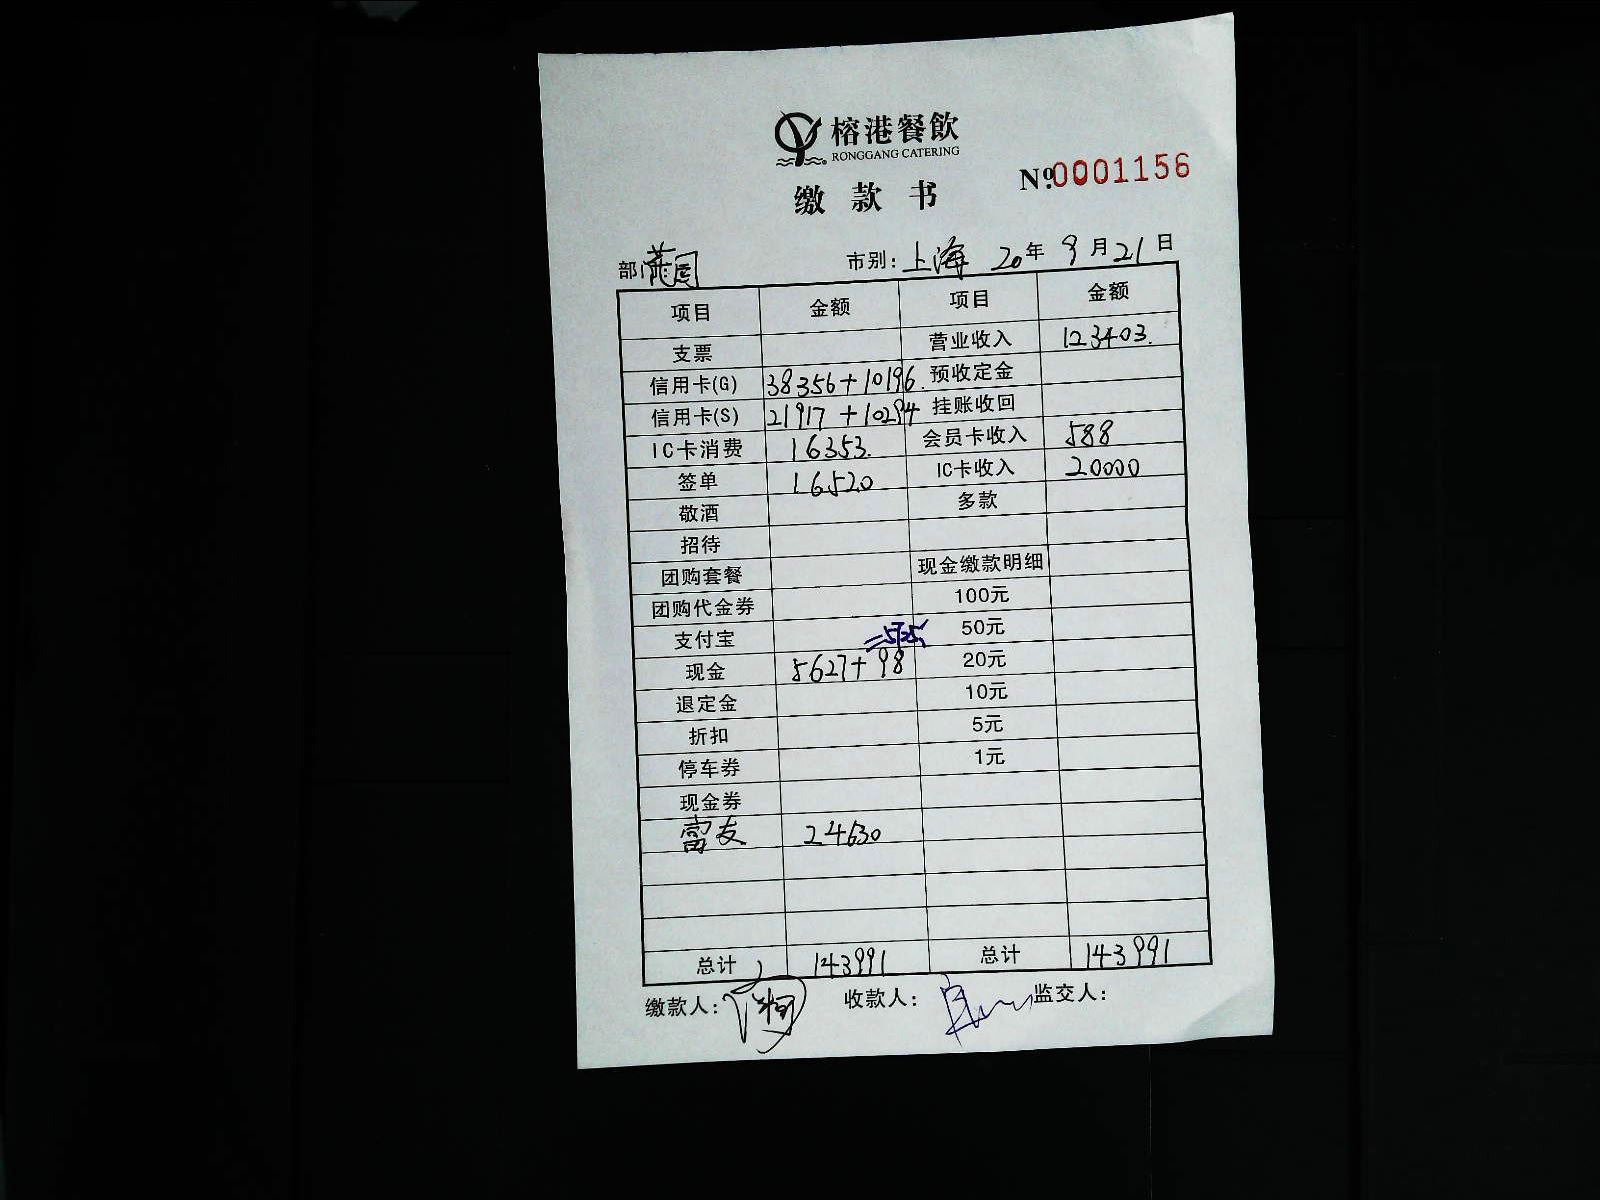 榕港餐飲
RONGGANG CATERING
缴款书
Nº 0001156
部门
市别: 上海 20年 9月21日
项目 金额 项目 金额
支票 营业收入 123403.
信用卡(G) 38356+10196. 预收定金
信用卡(S) 21917+10294 挂账收回
IC卡消费 16353. 会员卡收入 588
签单 16520 IC卡收入 20000
敬酒 多款
招待
团购套餐 现金缴款明细
团购代金券 100元
支付宝 =5725 50元
现金 5627+98 20元
退定金 10元
折扣 5元
停车券 1元
现金券
富友 24630
总计 143991 总计 143991
缴款人: 收款人: 监交人: